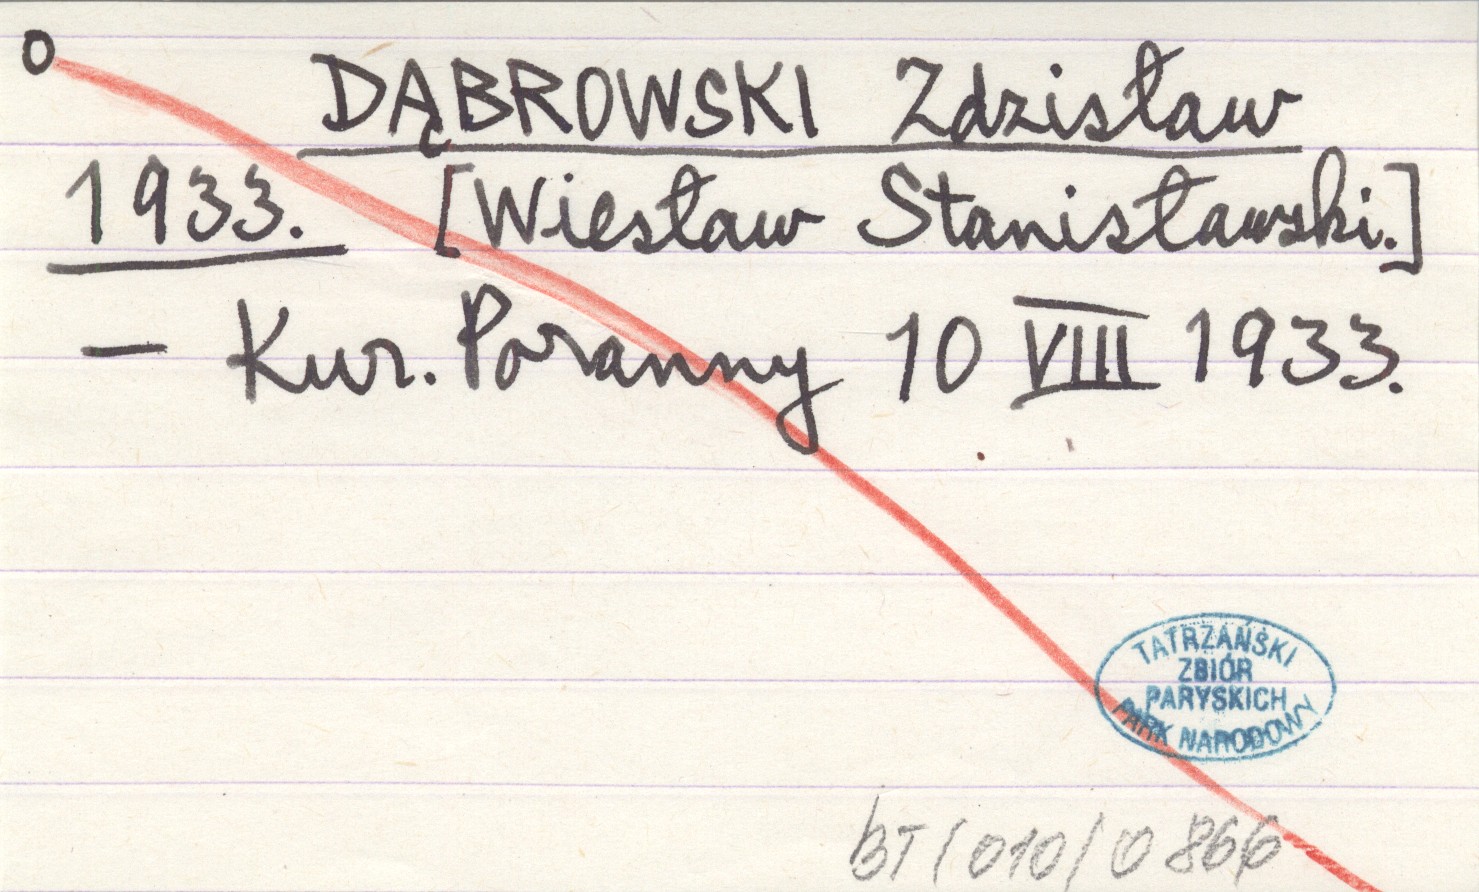 O
DĄBROWSKI Zdzisław
1933. [Wiesław Stanisławski.]
— Kur. Poranny 10 VIII 1933.
TATRZAŃSKI
ZBIÓR
PARYSKICH
PARK NARODOWY
BT/010/0866